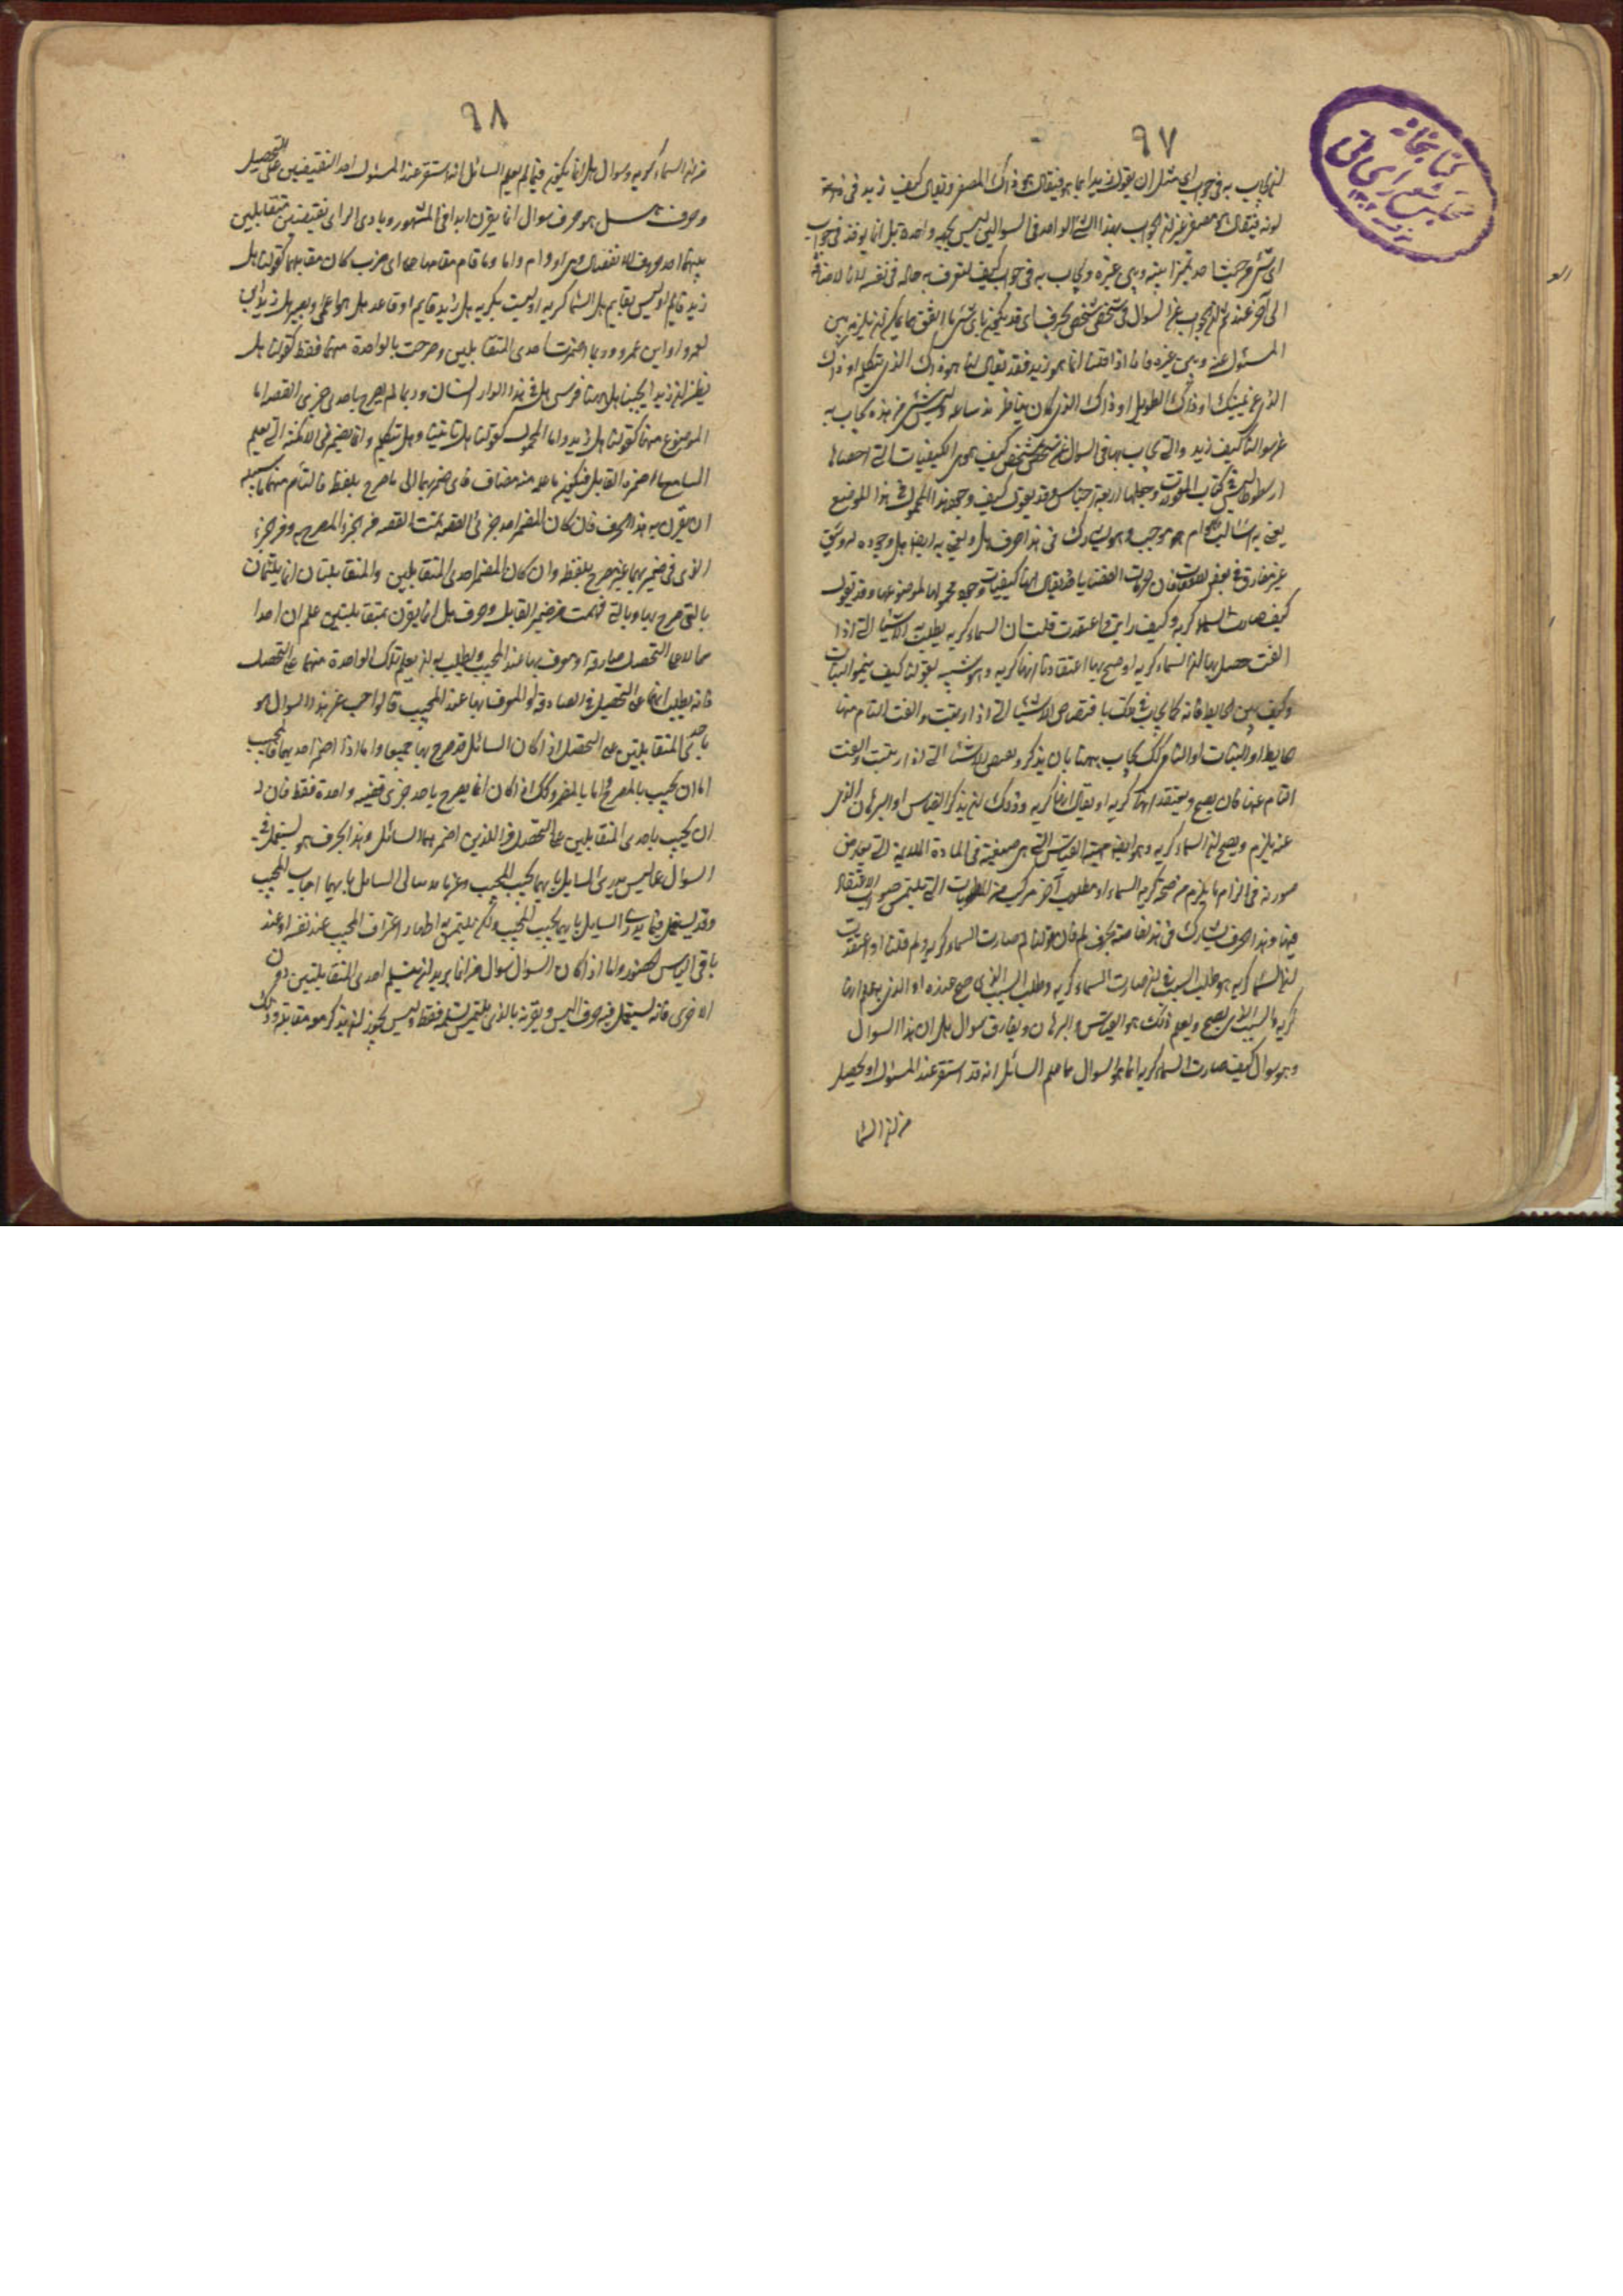 ٩٧
لان يجاب به في جواب اي مثل ان يقول زيد ايما هو فيقال هو ذاك المصفر ويقال كيف زيد في
لونه فيقال هو مصفر غير ان الجواب بهذا الشيء الواحد في السؤالين ليس بجهة واحدة بل انما يؤخذ في جواب
اي شيء من حيث يتميز بينه وبين غيره ويجاب به في جواب كيف لتعرف به حاله في نفسه لا بالاضافة
الى آخر عنه ثم ان الجواب عن السؤال في شخص شخص بحرف اي قد يكون باي شيء ما اتفق مما يمكن ان يميز بين
المسئول عنه وبين غيره فانا اذا قلنا ايما هو زيد فقد يقال لنا هو ذاك الذي يتكلم او ذاك
الذي عن يمينك او ذاك الطويل او ذاك الذي كان يناظر منذ ساعة وليس شيء من هذه يجاب به
عن سوالنا كيف زيد والتي يجاب بها في السوال عن شخص شخص كيف هو هي الكيفيات التي احصاها
ارسطوطاليس في كتاب المقولات وجعلها اربعة اجناس وقد يقول كيف وجود هذا المحمول في هذا الموضوع
يعني به اسالب هو ام هو موجب وهو يشارك في هذا حرف هل ونعني به ايضا هل وجوده له وثيق
غير مفارق في بعض الاوقات فان جهات القضايا قد يقال انها كيفيات وجود محمولها لموضوعها وقد يقول
كيف صارت السماء كرية وكيف رايت واعتقدت وقلت ان السماء كرية يطلب به الاشياء التي اذا
الفت حصل بها ان السماء كرية او صح بها اعتقادنا انها كرية وهو شبيه بقولنا كيف ينمو النبات
وكيف يبنى الحايط فانه كما يجاب في تلك باقتصاص الاشياء التي اذا رتبت والفت التام منها
حايط او النبات او التام كذلك يجاب ههنا بان يذكر ويقتص الاشياء التي اذا رتبت والفت
التام عنها فان يصح ويعتقد انها كرية او يقال انها كرية وذلك ان يذكر القياس او البرهان الذي
عنه يلزم ويصح ان السماء كرية وهو ايضا ماهية القياس التي هي صيغته في المادة
صورته في الزام ما يلزم من صحة كرية السماء او مطلوب آخر من المطلوبات التي نلتمس صواب الاعتقاد
فيها وهذا الحرف يشارك في هذا خاصة بحرف لم فان قولنا لم صارت السماء كرية ولم قلنا او اعتقدت
ان السماء كرية هو طلب السبب في ان صارت السماء كرية وطلب السبب الذي صح عنده او الذي به علم انها
كرية والسبب الذي به يصح ويعلم ذلك هو القياس والبرهان ويفارق سوال هل ان هذا السوال
وهو سوال كيف صارت السماء كرية انما هو السوال عما علم السائل انه قد استقر عند المسئول وتحصيل
من ان السما
٩٨
من ان السماء كرية وسوال هل انما يكون فيما لم يعلم السائل انه استقر عند المسئول احد النقيضين على التحصيل
وحرف هل هو حرف سوال انما يقرن ابدا في المشهور وبادى الراى بقضيتين متقابلتين
بينهما احد حروف الانفصال وهي او وام واما وما قام مقامها على اي ضرب كان تقابلهما كقولنا هل
زيد قايم او ليس بقايم هل السماء كرية او ليست بكرية هل زيد قايم او قاعد هل هو اعمى او بصير هل زيد ابن
لعمرو او ابن عمرو وربما اضمرت احدى المتقابلتين وصرحت بالواحدة منهما فقط كقولنا هل
تظن ان زيدا يجيبنا هل ههنا فرس هل في هذا الدار انسان وربما لم يصرح باحد جزئي القضية اما
الموضوع منها كقولنا هل زيد واما المحمول كقولنا هل ياتينا وهل يتكلم وانما يضمر في الامكنة التي يعلم
السامع ما اضمره القايل فيكون ما عد منه مضاف في ضميرهما الى ما صرح بلفظه فالتام منهما ما سبيله
ان يقرن به هذا الحرف فان كان المضمر احد جزئي القضية تمت القضية من الجزء المصرح به ومن الجزء
الذي في ضميرهما غير مصرح بلفظه وان كان المضمر احدى المتقابلتين والمتقابلتان انما يلتئمان
بالتي صرح بها وبالتي فهمت من ضمير القايل وحرف هل انما يقرن بمتقابلتين علم ان احدا
هما لا على التحصيل صادقة او معروف بها عند المجيب ويطلب به ان يعلم تلك الواحدة منهما على التحصيل
فانه يطلب ايها على التحصيل هي الصادقة او المعروف بها عند المجيب فالواجب عن هذا السوال هو
باحدى المتقابلتين على التحصيل اذا كان السائل قد صرح بها جميعا واما اذا اضمر احديهما فالمجيب
اما ان يجيب بالمصرح واما بالمضمر وكذلك اذا كان انما يصرح باحد جزئي قضية واحدة فقط فان له
ان يجيب باحدى المتقابلتين على التحصيل من اللذين اضمرهما السائل وهذا الحرف هو يستعمل في
السوال عما ليس يدري السايل بايهما يجيب المجيب وعما لا يبالي السايل بايهما اجاب المجيب
وقد يستعمل فيما يدري السايل بايهما يجيب المجيب ولكن يلتمس به اظهار اعتراف المجيب عند نفسه او عند
باقي الناس الحضور واما اذا كان السوال سوال من انما يريد ان يتسلم احدى المتقابلتين دون
الاخرى فانه يستعمل فيه حرف اليس ويقرنه بالذي يلتمس تسلمه فقط وليس يجوز ان يذكر معه مقابله وذلك